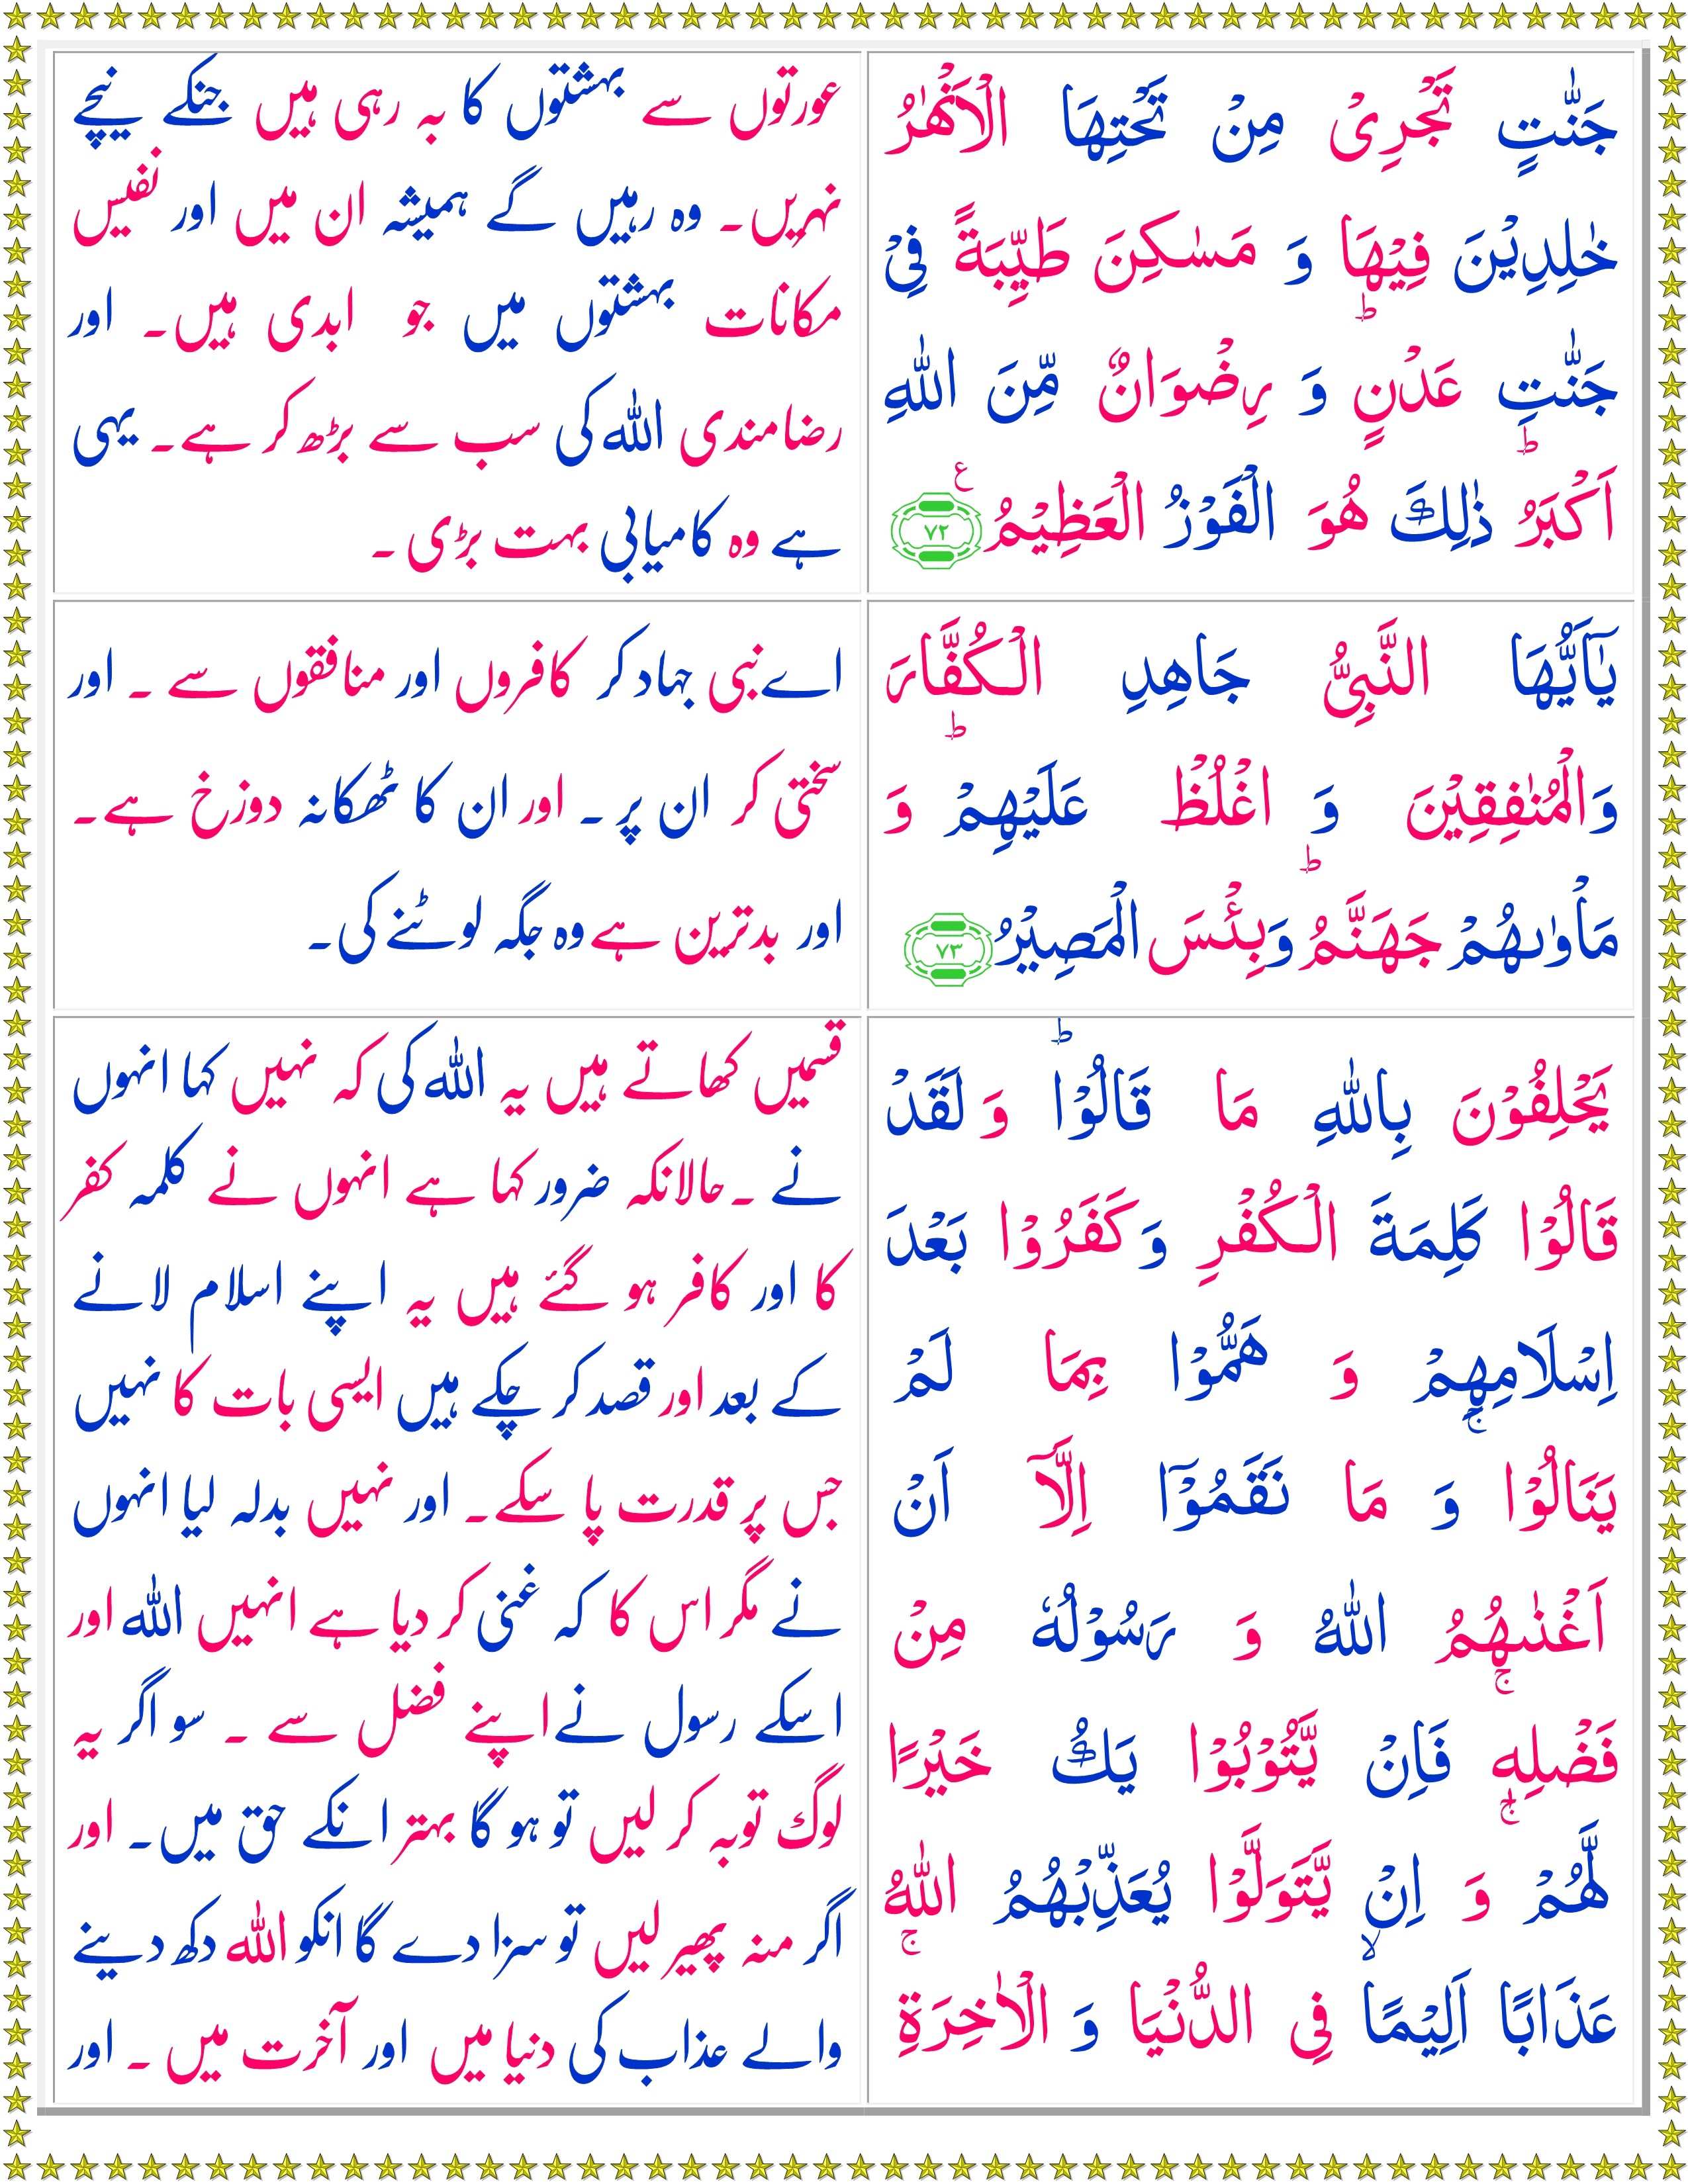 جَنّٰتٍ تَجْرِیْ مِنْ تَحْتِهَا الْاَنْهٰرُ
خٰلِدِیْنَ فِیْهَا وَ مَسٰكِنَ طَیِّبَةً فِیْ
جَنّٰتِ عَدْنٍ ؕ وَ رِضْوَانٌ مِّنَ اللّٰهِ
اَكْبَرُ ؕ ذٰلِكَ هُوَ الْفَوْزُ الْعَظِیْمُ ع ۷۲
عورتوں سے بہشتوں کا بہ رہی ہیں جنکے نیچے
نہریں۔ وہ رہیں گے ہمیشہ ان میں اور نفیس
مکانات بہشتوں میں جو ابدی ہیں۔ اور
رضامندی اللہ کی سب سے بڑھ کر ہے۔ یہی
ہے وہ کامیابی بہت بڑی ۔
یٰۤاَیُّهَا النَّبِیُّ جَاهِدِ الْكُفَّارَ
وَالْمُنٰفِقِیْنَ وَ اغْلُظْ عَلَیْهِمْ ؕ وَ
مَاْوٰىهُمْ جَهَنَّمُ ؕ وَبِئْسَ الْمَصِیْرُ ۷۳
اے نبی جہاد کر کافروں اور منافقوں سے ۔ اور
سختی کر ان پر ۔ اور ان کا ٹھکانہ دوزخ ہے۔
اور بدترین ہے وہ جگہ لوٹنے کی۔
یَحْلِفُوْنَ بِاللّٰهِ مَا قَالُوْا ؕ وَ لَقَدْ
قَالُوْا كَلِمَةَ الْكُفْرِ وَكَفَرُوْا بَعْدَ
اِسْلَامِهِمْ وَ هَمُّوْا بِمَا لَمْ
یَنَالُوْا ۚ وَ مَا نَقَمُوْۤا اِلَّاۤ اَنْ
اَغْنٰىهُمُ اللّٰهُ وَ رَسُوْلُهٗ مِنْ
فَضْلِهٖ ۚ فَاِنْ یَّتُوْبُوْا یَكُ خَیْرًا
لَّهُمْ ۚ وَ اِنْ یَّتَوَلَّوْا یُعَذِّبْهُمُ اللّٰهُ
عَذَابًا اَلِیْمًا ۙ فِی الدُّنْیَا وَ الْاٰخِرَةِ ۚ
قسمیں کھاتے ہیں یہ اللہ کی کہ نہیں کہا انہوں
نے ۔ حالانکہ ضرور کہا ہے انہوں نے کلمہ کفر
کا اور کافر ہو گئے ہیں یہ اپنے اسلام لانے
کے بعد اور قصد کر چکے ہیں ایسی بات کا نہیں
جس پر قدرت پا سکے۔ اور نہیں بدلہ لیا انہوں
نے مگر اس کا کہ غنی کر دیا ہے انہیں اللہ اور
اسکے رسول نے اپنے فضل سے ۔ سو اگر یہ
لوگ توبہ کر لیں تو ہو گا بہتر انکے حق میں۔ اور
اگر منہ پھیر لیں تو سزا دے گا انکو اللہ دکھ دینے
والے عذاب کی دنیا میں اور آخرت میں ۔ اور